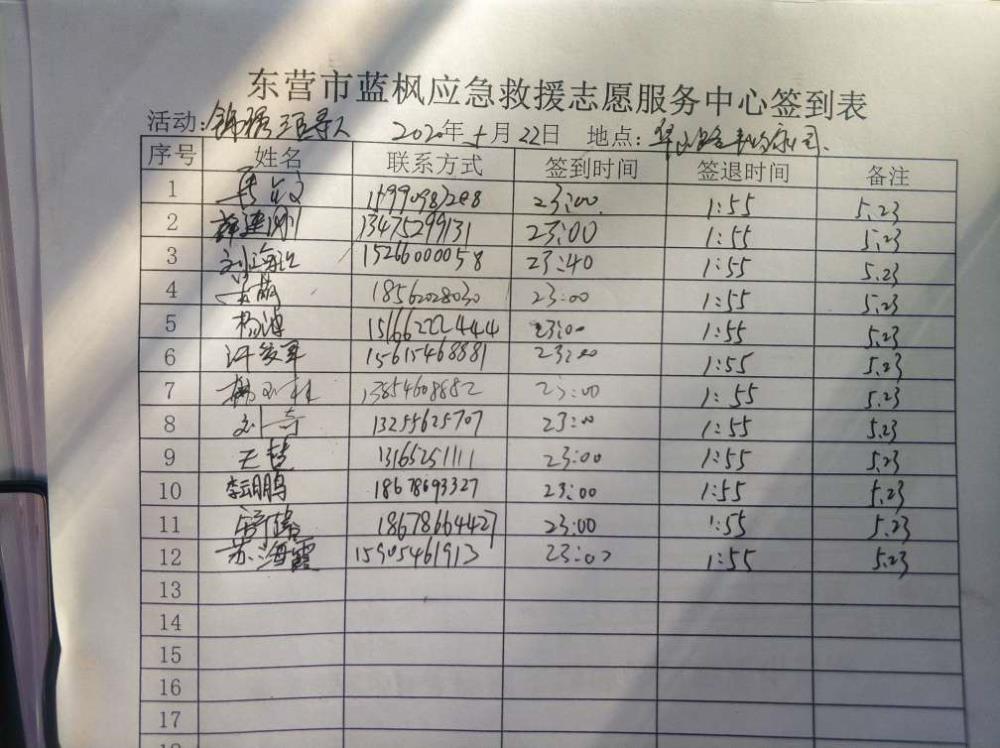 东营市蓝枫应急救援志愿服务中心签到表
活动: 2020年5月22日 地点:
序号 姓名 联系方式 签到时间 签退时间 备注
1 23:00 1:55 5.23
2 薛建刚 13475299131 23:00 1:55 5.23
3 15266000058 23:40 1:55 5.23
4 18562028030 23:00 1:55 5.23
5 杨涛 15166222444 23:00 1:55 5.23
6 许爱军 15615468881 23:00 1:55 5.23
7 13854608882 23:00 1:55 5.23
8 刘奇 13255625707 23:00 1:55 5.23
9 13165251111 23:00 1:55 5.23
10 李云鹏 18678693327 23:00 1:55 5.23
11 18678664427 23:00 1:55 5.23
12 苏海霞 15905461913 23:00 1:55 5.23
13
14
15
16
17